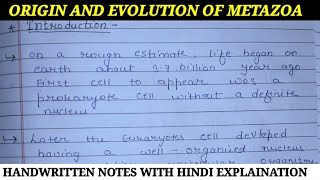 ORIGIN AND EVOLUTION OF METAZOA
* Introduction -
→ on a rough estimate life began on
earth about 3.7 billion year ago
First cell to appear was a
prokaryote cell without a definite
nucleus
→ Later the Eukaryotes cell developed
having a well - organized nucleus
organism
HANDWRITTEN NOTES WITH HINDI EXPLAINATION